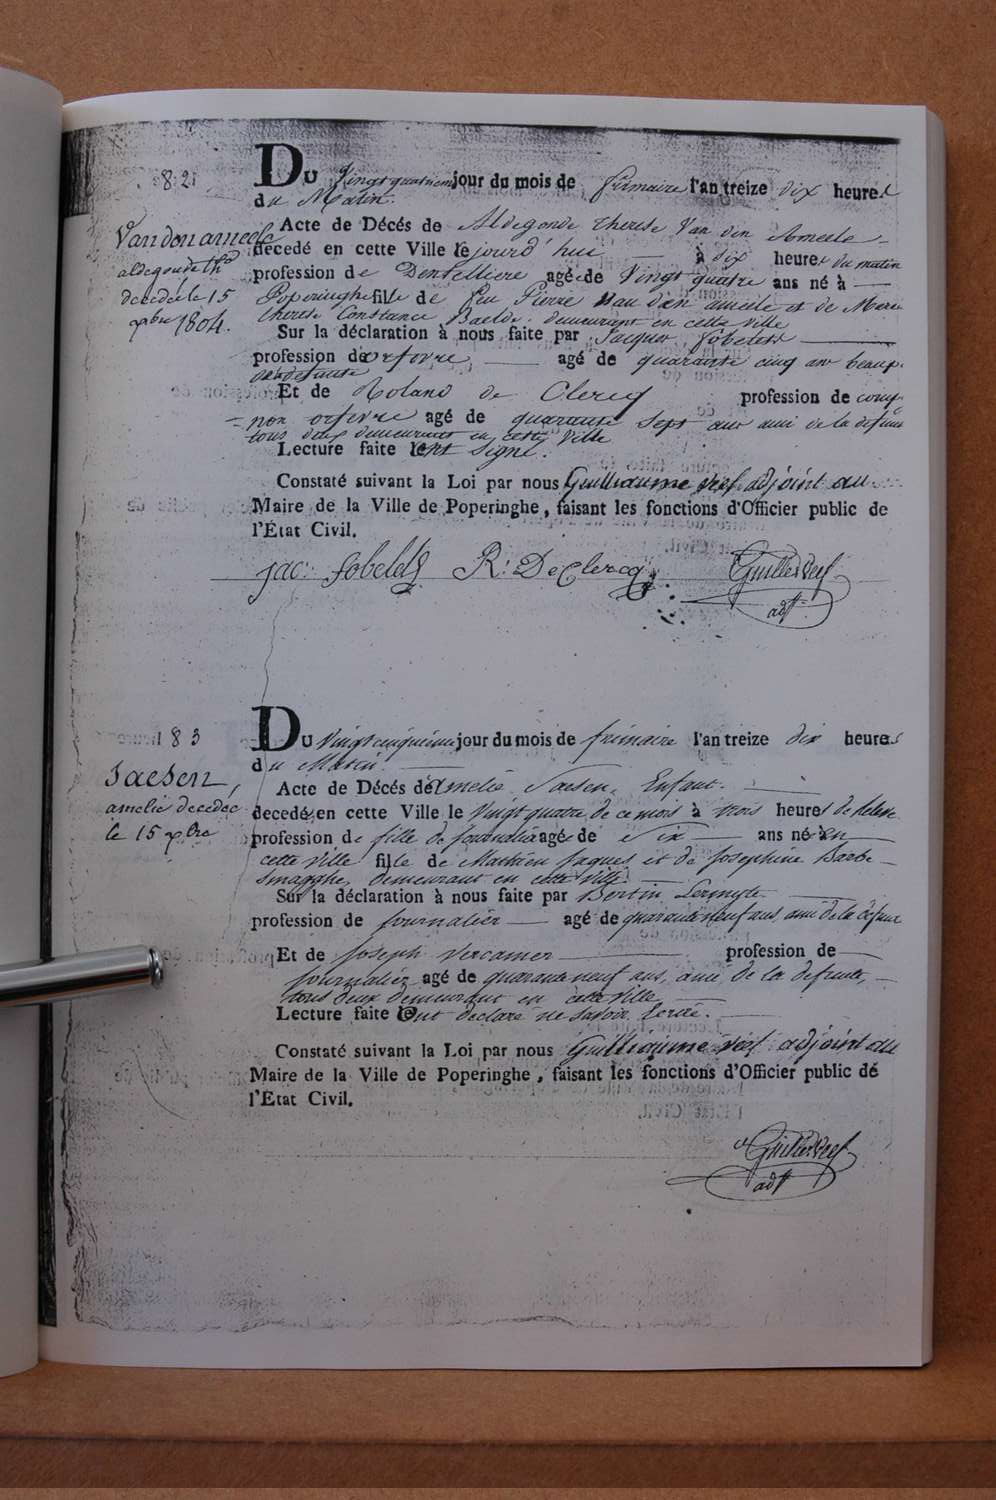 82
Du Vingt quatrieme jour du mois de frimaire l'an treize dix heures
du Matin.
Vandenameele
aldegonde thse
decedée le 15
xbre 1804.
Acte de Décés de Aldegonde Therese Van den Ameele
decedé en cette Ville le jourd'hui à dix heures du matin
profession de Dentelliere agé de Vingt quatre ans né à
Poperinghe fille de feu Pierre van den ameele et de Marie
therese Constance Baelde demeurant en cette ville
Sur la déclaration à nous faite par Jacques
profession de orfevre agé de quarante cinq ans beaup.
de la defunte
Et de Roland de Clercq profession de comp
=non orfevre agé de quarante sept ans ami de la defunte
tous deux demeurant en cette Ville
Lecture faite ont signé.
Constaté suivant la Loi par nous Guilliaume Reef adjoint au
Maire de la Ville de Poperinghe, faisant les fonctions d'Officier public de
l'État Civil.
jac: R: DeClercq Guille Reef
adjt
83
Du Vingt cinquieme jour du mois de frimaire l'an treize dix heures
du Matin
Saesen,
amelie decedée
le 15 xbre
Acte de Décés de amelie Saesen, Enfant.
decedé en cette Ville le Vingt quatre de ce mois à trois heures de releve
profession de fille de journalier agé de six ans né en
cette ville fille de Mathieu Jaques et de Josephine Barbe
Smagghe demeurant en cette ville
Sur la déclaration à nous faite par Bertin Lermyte
profession de journalier agé de quarante neuf ans, ami de la defunte
Et de Joseph Vercamer profession de
journalier agé de quarante neuf ans, ami de la defunte,
tous deux demeurant en cette ville
Lecture faite ont declaré ne savoir Ecrire.
Constaté suivant la Loi par nous Guilliaume Reef adjoint au
Maire de la Ville de Poperinghe, faisant les fonctions d'Officier public de
l'Etat Civil.
Guille Reef
adjt